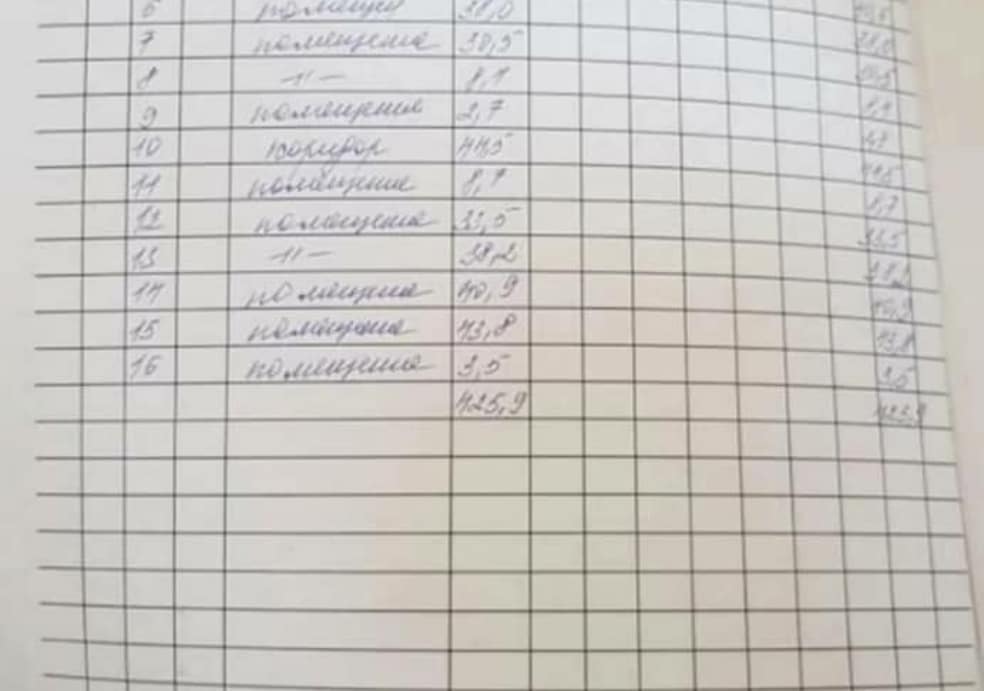 6 помещен 38,0
7 помещение 30,5
8 -"- 8,7
9 помещение 2,7
10 коридор 44,5
11 помещение 8,7
12 помещение 33,5 33,5
13 -"- 38,2
14 помещение 40,9 40,9
15 помещение 43,8 43,8
16 помещение 3,5 3,5
425,9 425,9